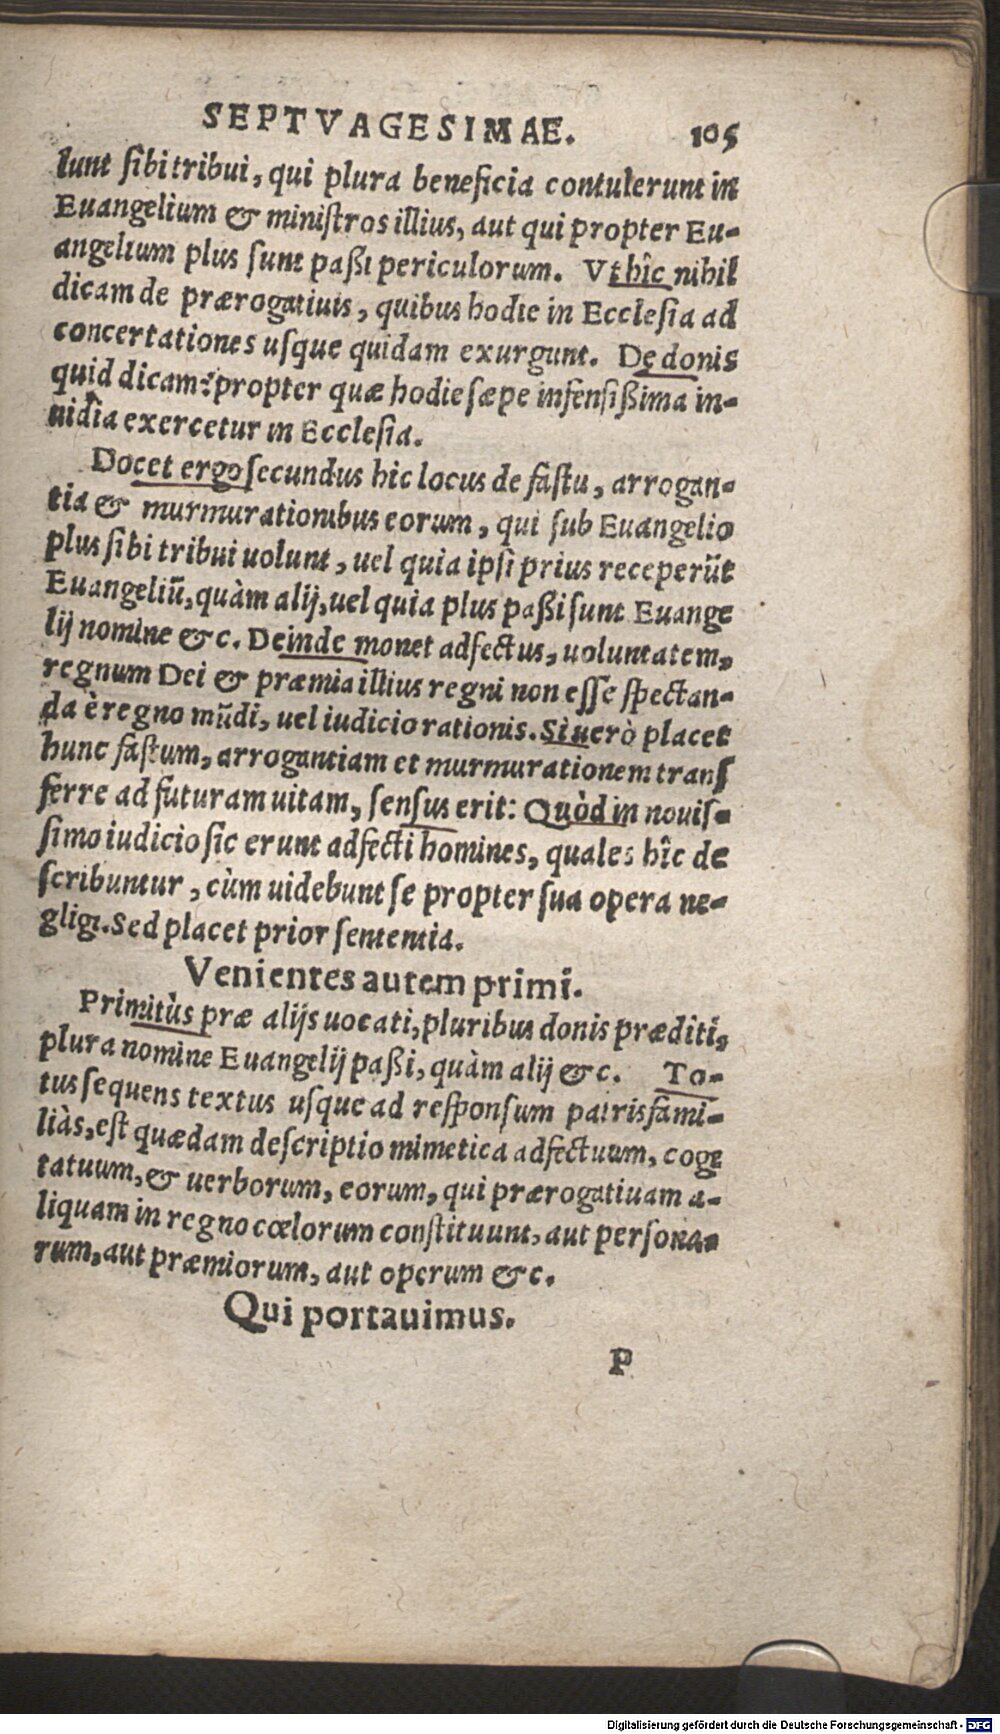 SEPTVAGESIMAE. 105
lunt sibi tribui, qui plura beneficia contulerunt in
Euangelium & ministros illius, aut qui propter Eu-
angelium plus sunt paßi periculorum. Vt hîc nihil
dicam de prærogatiuis, quibus hodie in Ecclesia ad
concertationes usque quidam exurgunt. De donis
quid dicam? propter quæ hodie sæpe infensißima in-
uidia exercetur in Ecclesia.
Docet ergo secundus hic locus de fastu, arrogan-
tia & murmurationibus eorum, qui sub Euangelio
plus sibi tribui uolunt, uel quia ipsi prius receperũt
Euangeliũ, quàm alij, uel quia plus paßi sunt Euange
lij nomine &c. Deinde monet adfectus, uoluntatem,
regnum Dei & præmia illius regni non esse spectan-
da è regno mũdi, uel iudicio rationis. Si uerò placet
hunc fastum, arrogantiam et murmurationem trans
ferre ad futuram uitam, sensus erit: Quòd in nouis-
simo iudicio sic erunt adfecti homines, quales hîc de
scribuntur, cùm uidebunt se propter sua opera ne-
gligi. Sed placet prior sententia.
Venientes autem primi.
Primitùs præ alijs uocati, pluribus donis præditi,
plura nomine Euangelij paßi, quàm alij &c. To-
tus sequens textus usque ad responsum patrisfami-
liàs, est quædam descriptio mimetica adfectuum, cogi
tatuum, & uerborum, eorum, qui prærogatiuam a-
liquam in regno cœlorum constituunt, aut persona-
rum, aut præmiorum, aut operum &c.
Qui portauimus.
P
Digitalisierung gefördert durch die Deutsche Forschungsgemeinschaft - DFG